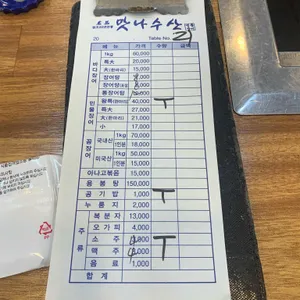 맛나수산
20 Table No. 21
메뉴 가격 수량 금액
바다장어
1kg 60,000
특대 20,000
大(한마리) 15,000
장어탕
장어탕
붕장어탕
민물장어
왕특(한마리) 40,000 ㅜ
특대 27,000
大(한마리) 21,000
小 17,000
꼼장어
국내산 1kg 70,000
1인분 18,000
미국산 1kg 50,000
1인분 15,000
아나고볶음 15,000
용봉탕 150,000
공기밥 1,000 ㅜ
누룽지 2,000
주류
복분자 13,000
오가피 4,000
소주 4,000 ㅜ
맥주 4,000
음료 1,000
합계